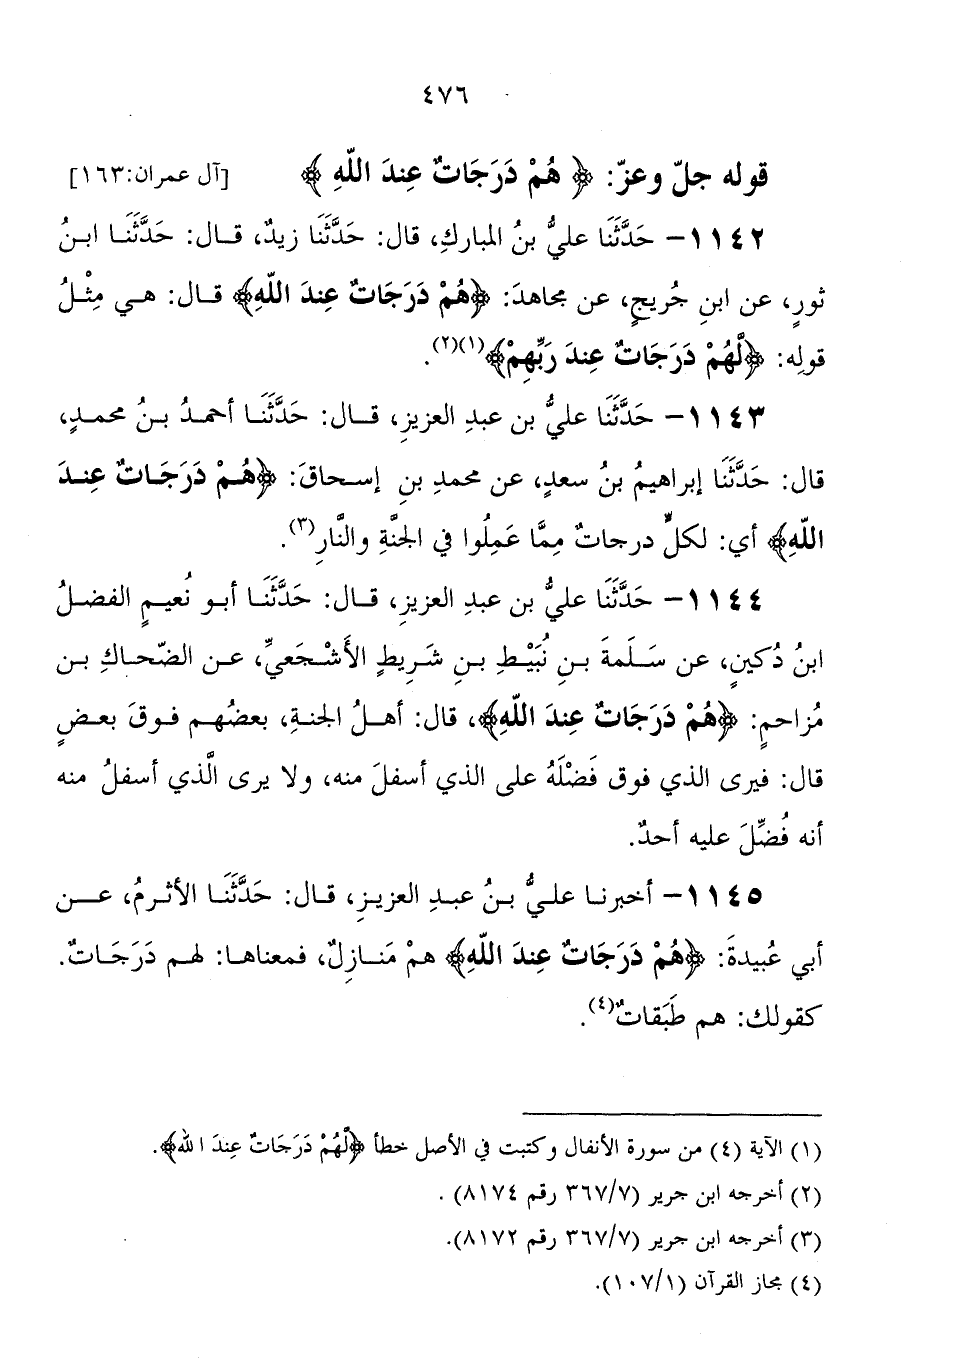 ٤٧٦
قوله جلّ وعزّ: ﴿ هُمْ دَرَجَاتٌ عِندَ اللّهِ ﴾ [آل عمران:١٦٣]
١١٤٢- حَدَّثَنَا عليُّ بنُ المباركِ، قال: حَدَّثَنَا زيدٌ، قــال: حَدَّثَنَــا ابـنُ
ثورٍ، عن ابنِ جُريجٍ، عن مجاهدَ: ﴿هُمْ دَرَجَاتٌ عِندَ اللّهِ﴾ قــال: هــي مِثْــلُ
قولِه: ﴿لَّهُمْ دَرَجَاتٌ عِندَ رَبِّهِمْ﴾(١)(٢).
١١٤٣- حَدَّثَنَا عليُّ بن عبدِ العزيزِ، قــال: حَدَّثَنَــا أحمــدُ بــنُ محمــدٍ،
قال: حَدَّثَنَا إبراهيمُ بنُ سعدٍ، عن محمدِ بنِ إسـحاقَ: ﴿هُــمْ دَرَجَــاتٌ عِنــدَ
اللّهِ﴾ أي: لكلٍّ درجاتٌ مِمَّا عَمِلُوا في الجنَّةِ والنَّارِ(٣).
١١٤٤- حَدَّثَنَا عليُّ بن عبدِ العزيزِ، قــال: حَدَّثَنَــا أبــو نُعيـمٍ الفضـلُ
ابنُ دُكينٍ، عن سَـلَمةَ بـنِ نُبَيْـطِ بـنِ شَـريطٍ الأشْـجَعيِّ، عـن الضّحـاكِ بـن
مُزاحمٍ: ﴿هُمْ دَرَجَاتٌ عِندَ اللّهِ﴾، قال: أهــلُ الجنـةِ، بعضُهـم فـوقَ بعـضٍ
قال: فيرى الذي فوق فَضْلَهُ على الذي أسفلَ منه، ولا يرى الَّذي أسفلُ منه
أنه فُضِّلَ عليه أحدٌ.
١١٤٥- أخبرنــا علــيُّ بــنُ عبــدِ العزيــزِ، قــال: حَدَّثَنَــا الأثــرمُ، عـــن
أبي عُبيدةَ: ﴿هُمْ دَرَجَاتٌ عِندَ اللّهِ﴾ همْ مَنــازِلٌ، فمعناهــا: لهــم دَرَجَــاتٌ.
كقولك: هم طَبَقاتٌ(٤).
(١) الآية (٤) من سورة الأنفال وكتبت في الأصل خطأ ﴿لَّهُمْ دَرَجَاتٌ عِندَ الله﴾.
(٢) أخرجه ابن جرير (٣٦٧/٧ رقم ٨١٧٤) .
(٣) أخرجه ابن جرير (٣٦٧/٧ رقم ٨١٧٢).
(٤) مجاز القرآن (١٠٧/١).